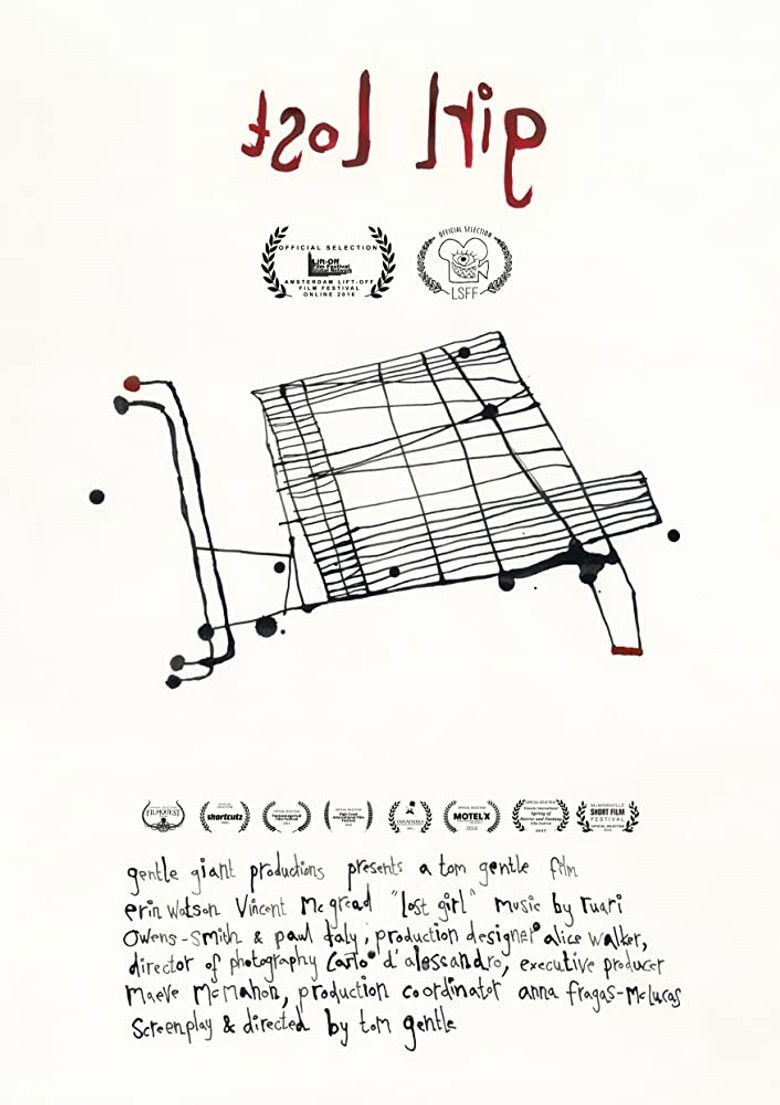 girl Lost
OFFICIAL SELECTION
Lift-Off
AMSTERDAM LIFT-OFF
FILM FESTIVAL
ONLINE 2016
OFFICIAL SELECTION
LSFF
FILMQUEST
shortcutz
MOTELX
2017
SHORT FILM
FESTIVAL
gentle giant productions presents a tom gentle film
erin watson Vincent Mcgread "lost girl" music by ruari
Owens-Smith & paul daly, production designer alice walker,
director of photography Carlo d'alessandro, executive producer
Maeve McMahon, production coordinator anna fragas-Mclucas
Screenplay & directed by tom gentle